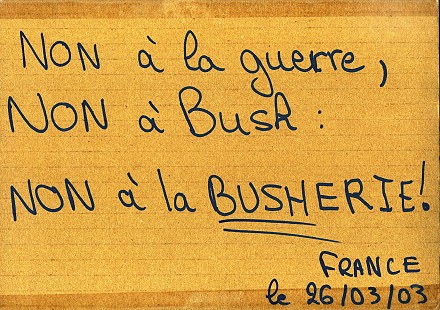 NON à la guerre,
NON à Bush :
NON à la BUSHERIE!
FRANCE
le 26/03/03